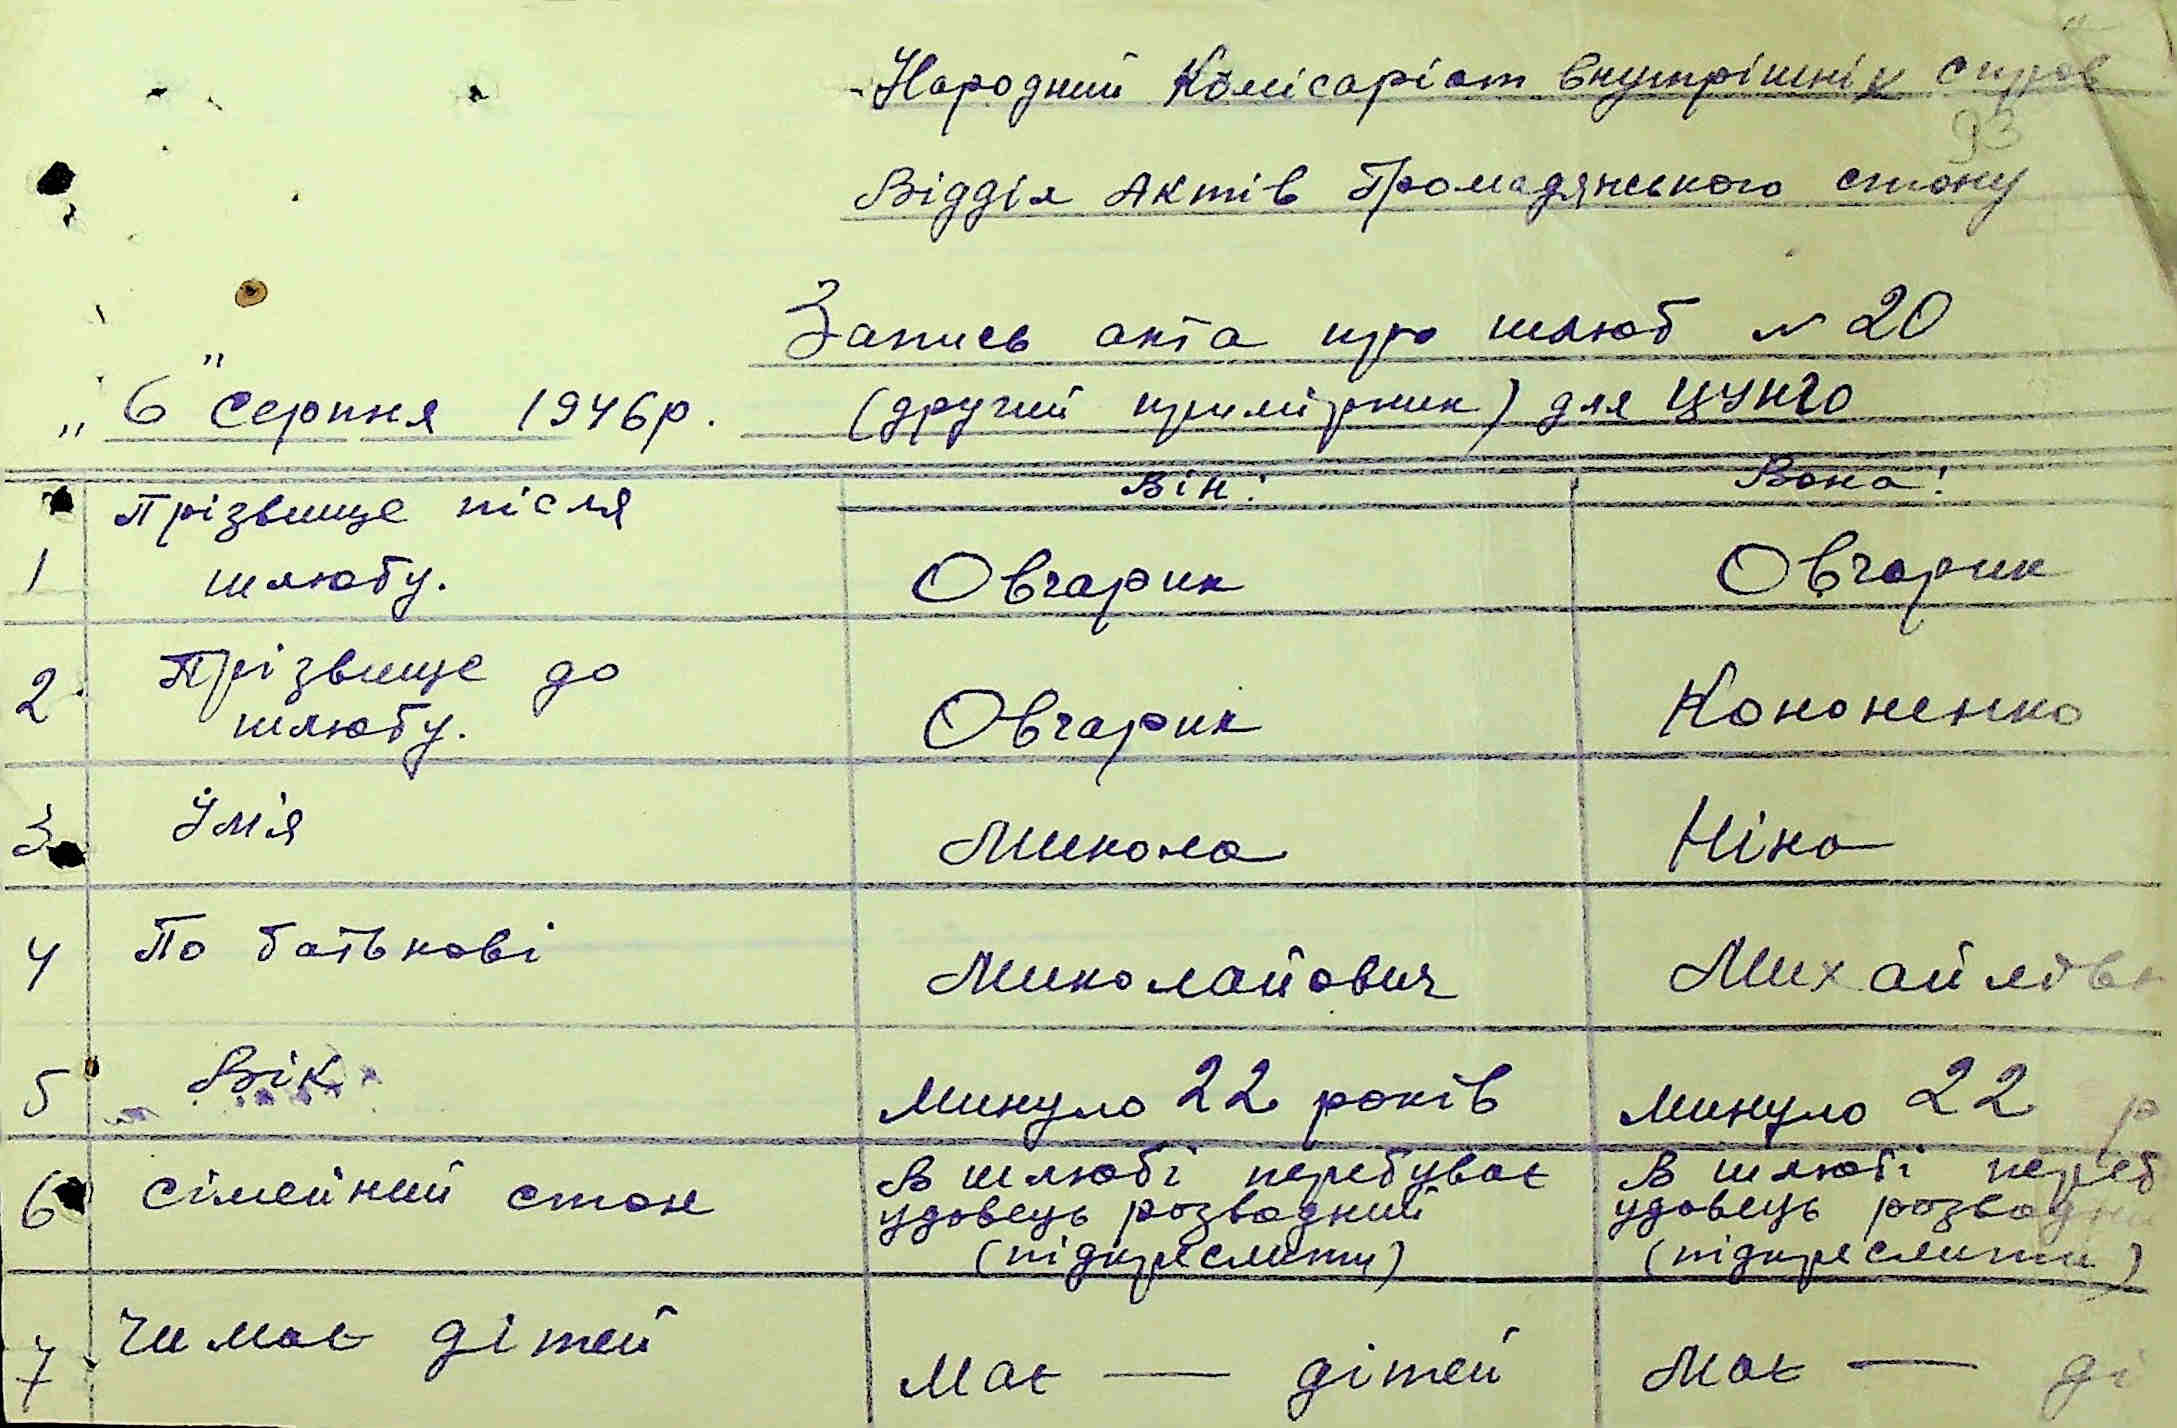 Народний Комісаріат внутрішніх справ
93
Відділ Актів Громадянського стану
Запись акта про шлюб № 20
„6" Серпня 1946р. (другий примірник) для ЦУНГО
Він: Вона:
1 Прізвище після шлюбу. Овчарик Овчарик
2 Прізвище до шлюбу. Овчарик Кононенко
3 Імя Микола Ніна
4 По батькові Миколайович Михайлівн
5 Вік Минуло 22 років Минуло 22 р
6 Сімейний стан В шлюбі перебуває В шлюбі переб
удовець розводний удовець розводни
(підкреслити) (підкреслити)
7 Чи має дітей Має — дітей Має — ді